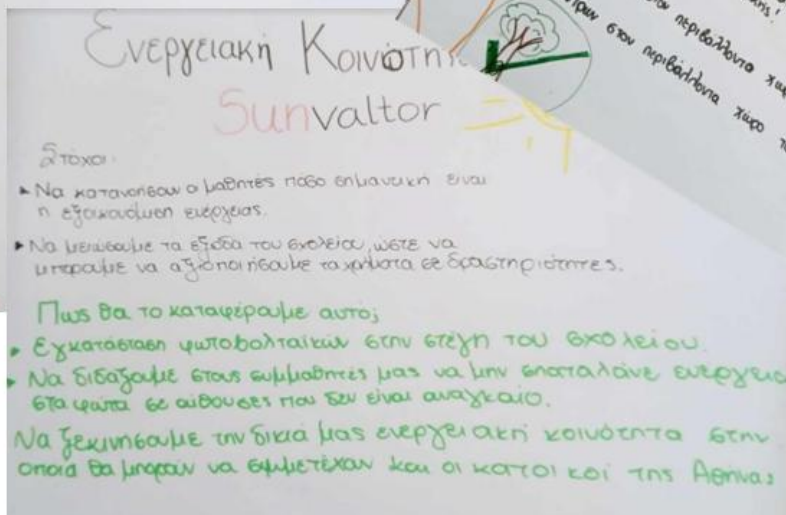 Ενεργειακή Κοινότη
Sunvaltor
Στόχοι:
▸ Να κατανοήσουν ο μαθητές πόσο σημαντική είναι
η εξοικονόμηση ενέργειας.
▸ Να μειώσουμε τα έξοδα του σχολείου, ώστε να
μπορούμε να αξιοποιήσουμε τα χρήματα σε δραστηριότητες.
Πως θα το καταφέρουμε αυτό;
• Εγκατάσταση φωτοβολταϊκών στην στέγη του σχολείου.
• Να διδάξουμε στους συμμαθητές μας να μην σπαταλάνε ενέργεια
στα φώτα σε αίθουσες που δεν είναι αναγκαίο.
Να ξεκινήσουμε την δικιά μας ενεργειακή κοινότητα στην
οποία θα μπορούν να συμμετέχουν και οι κάτοικοί της Αθήνας
περιβάλλοντα
στον περιβάλλοντα χώρο